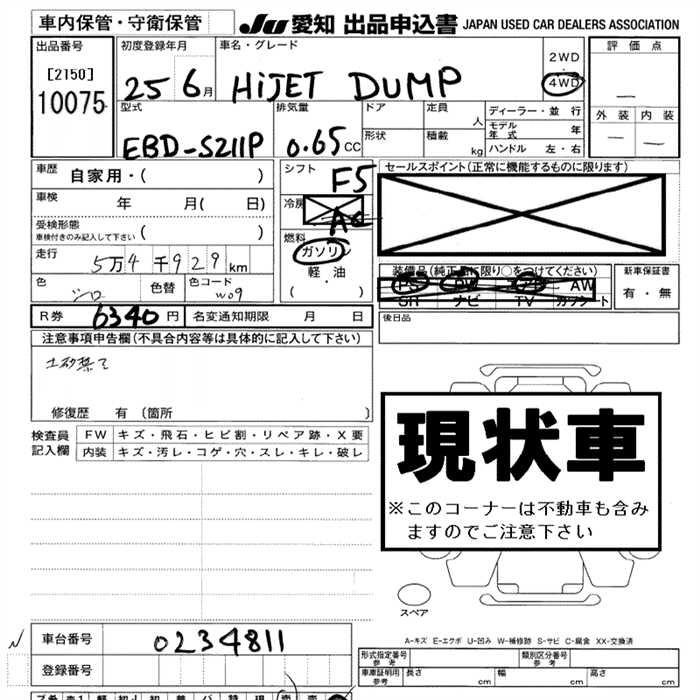 車内保管・守衛保管
JU 愛知 出品申込書 JAPAN USED CAR DEALERS ASSOCIATION
出品番号
[2150]
10075
初度登録年月
25 6月
車名・グレード
HiJET DUMP
2WD
・
4WD
評価点
―
外装 内装
― ―
型式
EBD-S211P
排気量
0.65CC
ドア
定員 人
形状
積載 kg
ディーラー・並行
モデル年式 年
ハンドル 左・右
車歴
自家用・( )
車検
年 月( 日)
受検形態
車検付きのみ記入して下さい ( )
走行
5万4千929km
色
シロ
色替
色コード
W09
シフト
F5
冷房
AC
燃料
ガソリン
軽・油
( )
セールスポイント(正常に機能するものに限ります)
装備品(純正品に限り○をつけてください)
PS PW AB AW
SR ナビ TV カワシート
新車保証書
有・無
R券 6340円
名変通知期限 月 日
後日品
注意事項申告欄(不具合内容等は具体的に記入して下さい)
修復歴 有 〔箇所 〕
検査員記入欄
FW キズ・飛石・ヒビ割・リペア跡・X要
内装 キズ・汚レ・コゲ・穴・スレ・キレ・破レ
現状車
※このコーナーは不動車も含み
ますのでご注意下さい
スペア
A-キズ E-エクボ U-凹み W-補修跡 S-サビ C-腐食 XX-交換済
車台番号
0234811
登録番号
形式指定番号
参考
類別区分番号
参考
車庫証明用
参考
長さ cm
幅 cm
高さ cm